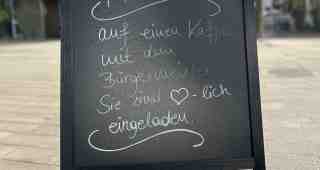 auf einen Kaffee
mit dem
Bürgermeister
Sie sind ♡-lich
eingeladen.